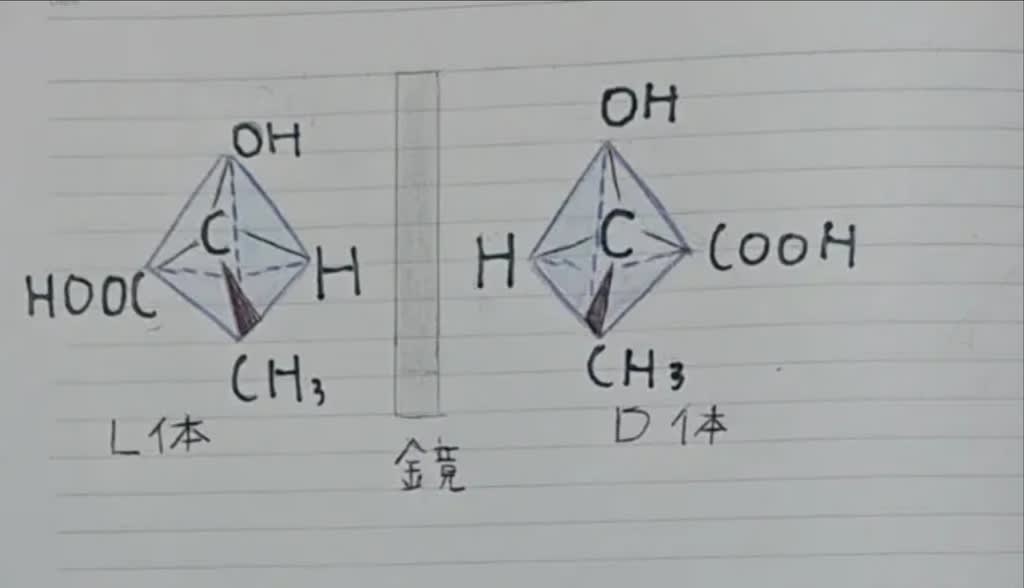 OH
C
HOOC
H
CH₃
L体
鏡
OH
C
H
COOH
CH₃
D体